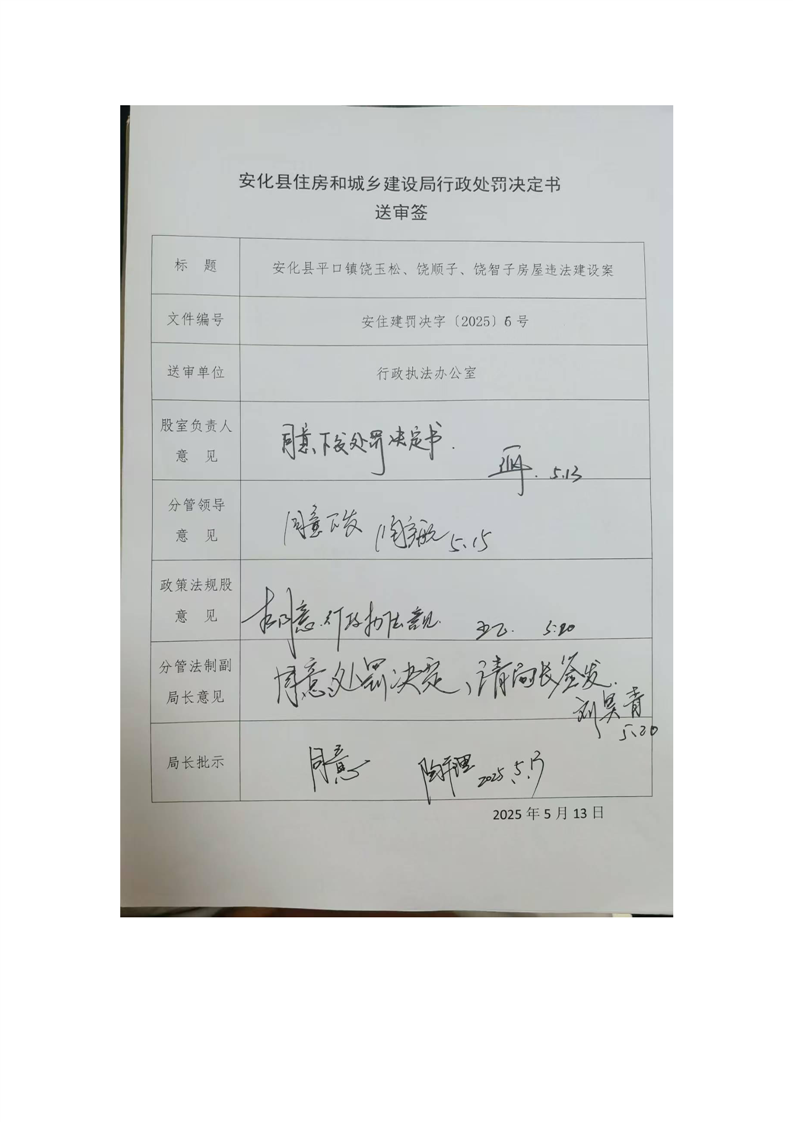 安化县住房和城乡建设局行政处罚决定书
送审签
标 题
安化县平口镇饶玉松、饶顺子、饶智子房屋违法建设案
文件编号
安住建罚决字〔2025〕6号
送审单位
行政执法办公室
股室负责人
意 见
同意下发处罚决定书.
5.13
分管领导
意 见
同意下发
5.15
政策法规股
意 见
同意 行政执法意见.
5.20
分管法制副
局长意见
同意处罚决定,请局长签发.
刘昊青
5.20
局长批示
同意
2025.5.
2025 年 5 月 13 日